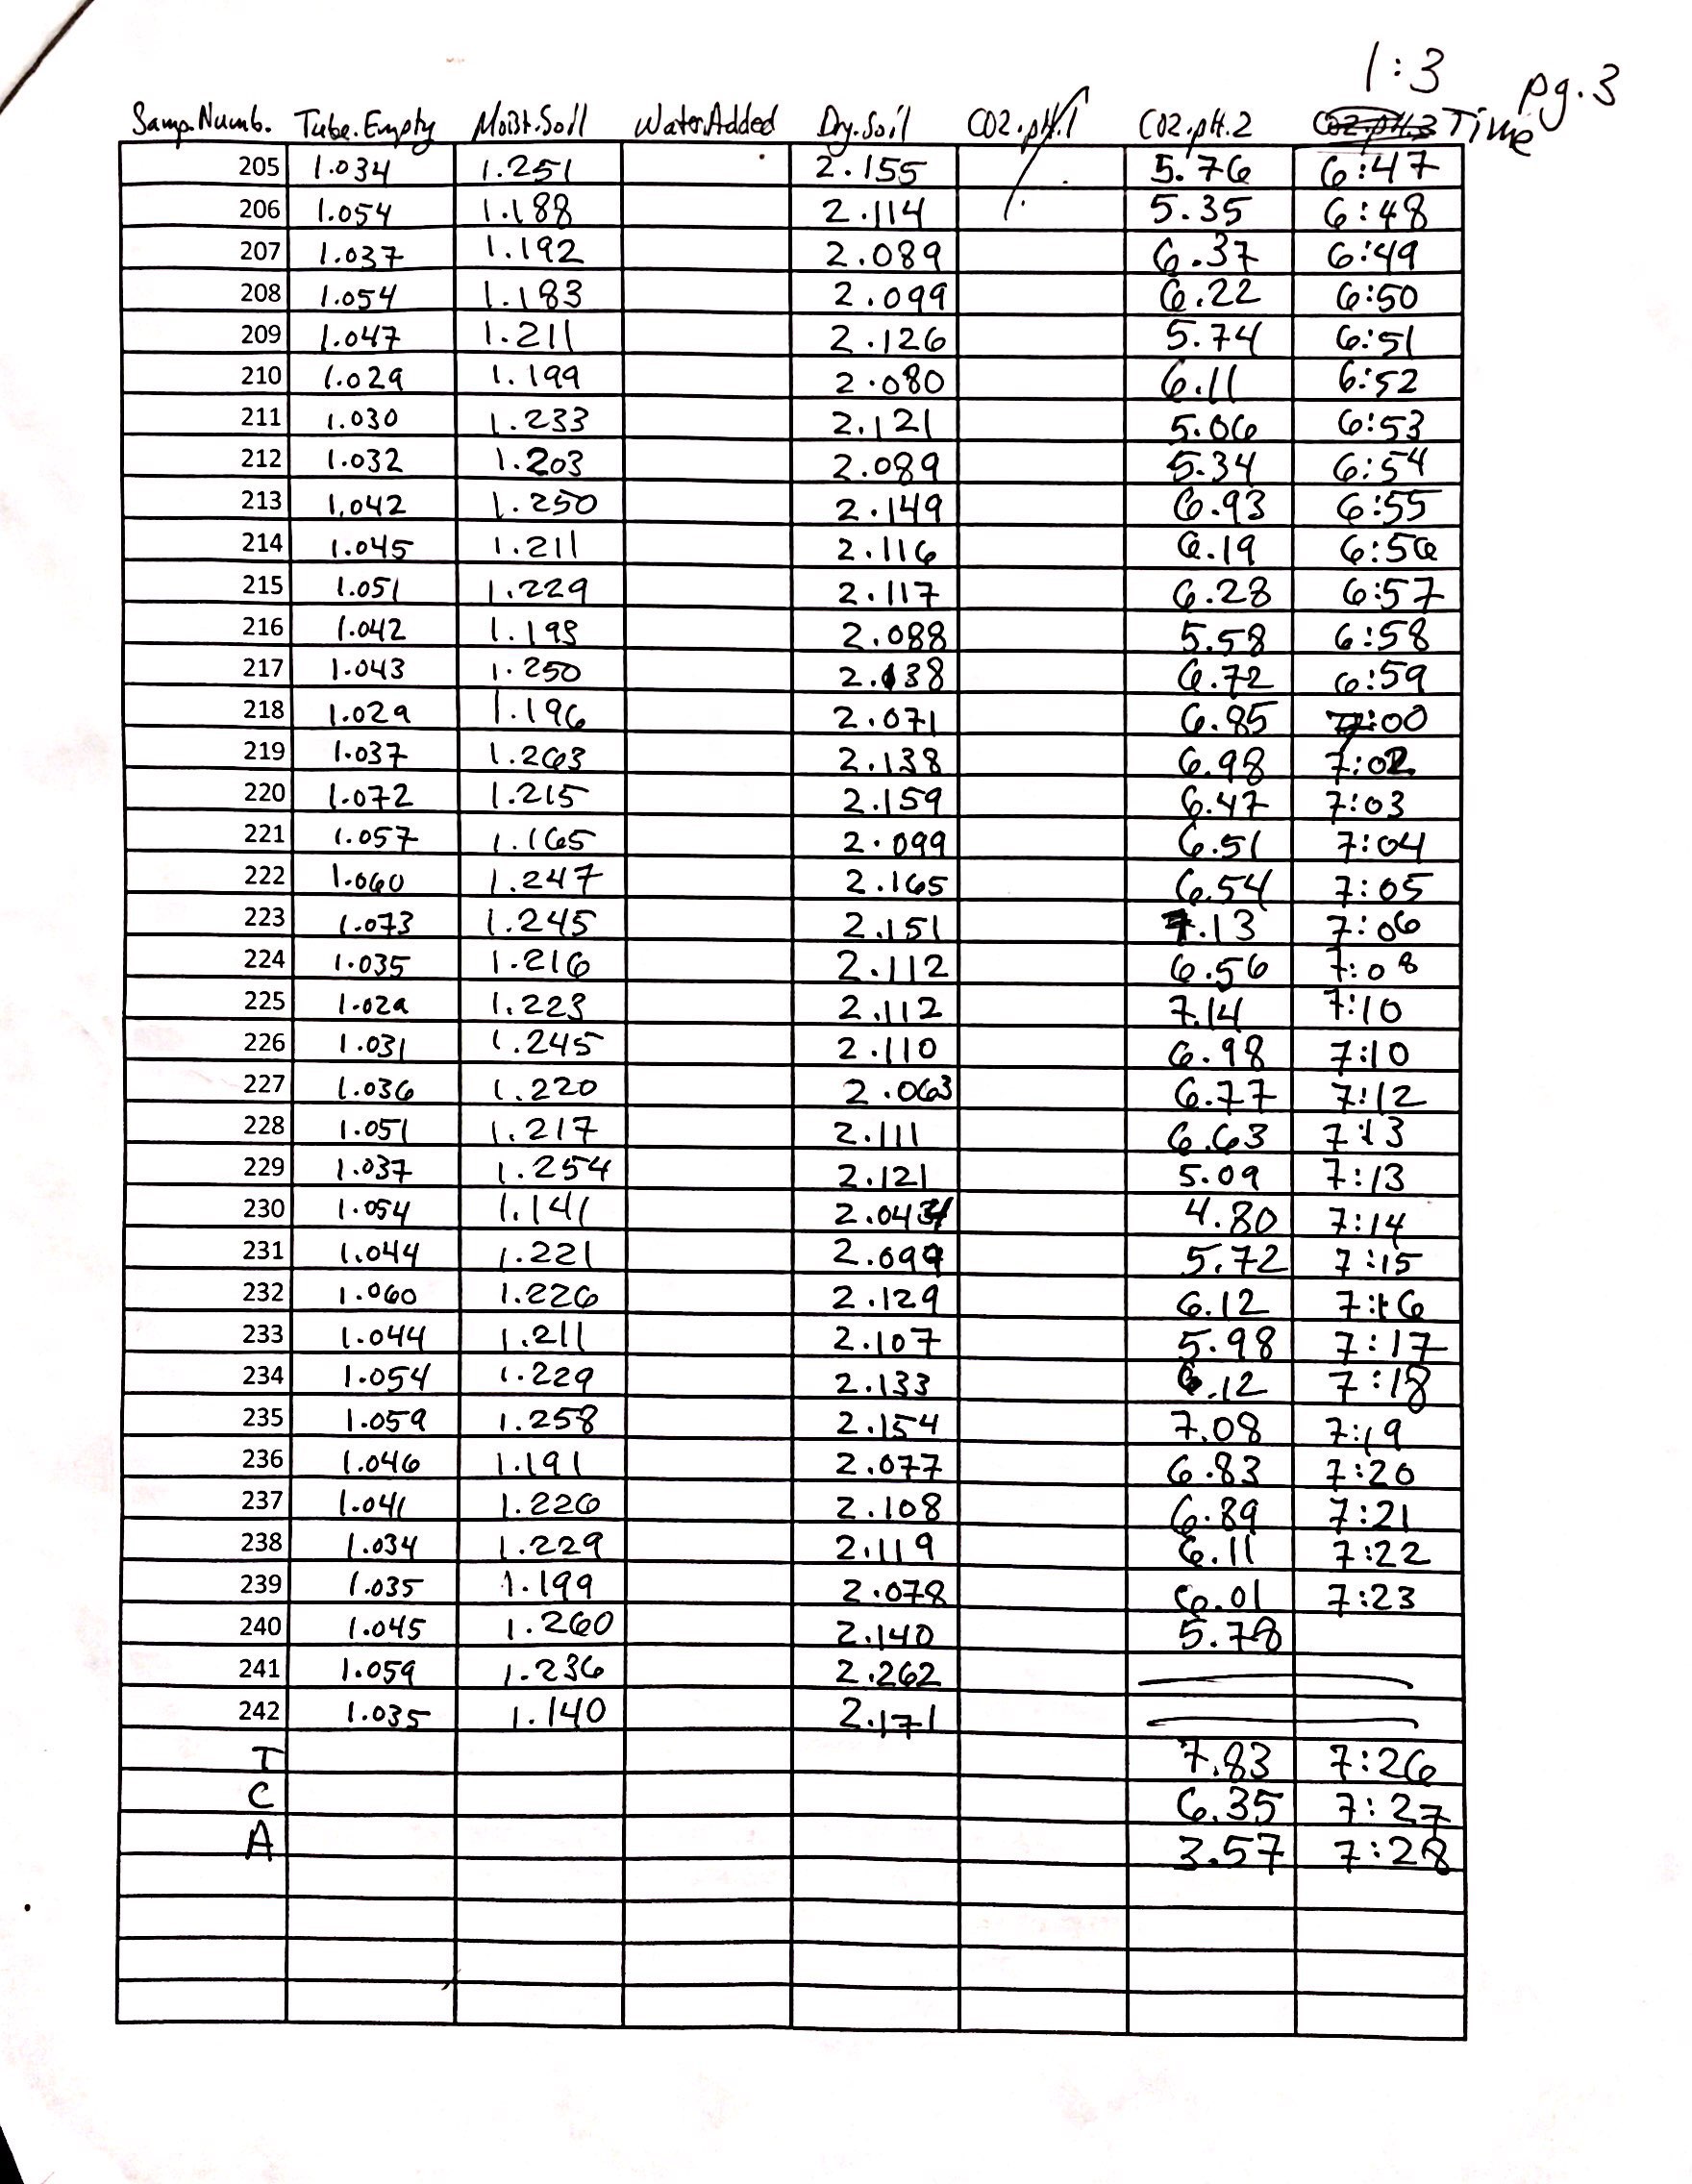 1:3 pg.3
Samp.Numb. Tube.Empty Moist.Soil Water.Added Dry.Soil CO2.pH.1 CO2.pH.2 CO2.pH.3 Time
205 1.034 1.251 2.155 5.76 6:47
206 1.054 1.188 2.114 5.35 6:48
207 1.037 1.192 2.089 6.37 6:49
208 1.054 1.183 2.099 6.22 6:50
209 1.047 1.211 2.126 5.74 6:51
210 1.029 1.199 2.080 6.11 6:52
211 1.030 1.233 2.121 5.06 6:53
212 1.032 1.203 2.089 5.34 6:54
213 1.042 1.250 2.149 6.93 6:55
214 1.045 1.211 2.116 6.19 6:56
215 1.051 1.229 2.117 6.28 6:57
216 1.042 1.198 2.088 5.58 6:58
217 1.043 1.250 2.138 6.72 6:59
218 1.029 1.196 2.071 6.85 7:00
219 1.037 1.263 2.138 6.98 7:02
220 1.072 1.215 2.159 6.47 7:03
221 1.057 1.165 2.099 6.51 7:04
222 1.060 1.247 2.165 6.54 7:05
223 1.073 1.245 2.151 7.13 7:06
224 1.035 1.216 2.112 6.56 7:08
225 1.029 1.223 2.112 7.14 7:10
226 1.031 1.245 2.110 6.98 7:10
227 1.036 1.220 2.063 6.77 7:12
228 1.051 1.217 2.111 6.63 7:13
229 1.037 1.254 2.121 5.09 7:13
230 1.054 1.141 4.80 7:14
231 1.044 1.221 2.099 5.72 7:15
232 1.060 1.226 2.129 6.12 7:16
233 1.044 1.211 2.107 5.98 7:17
234 1.054 1.229 2.133 6.12 7:18
235 1.059 1.258 2.154 7.08 7:19
236 1.046 1.191 2.077 6.83 7:20
237 1.041 1.226 2.108 6.89 7:21
238 1.034 1.229 2.119 6.11 7:22
239 1.035 1.199 2.078 6.01 7:23
240 1.045 1.260 2.140 5.78
241 1.059 1.236 2.262
242 1.035 1.140 2.171
T 7.83 7:26
C 6.35 7:27
A 3.57 7:28